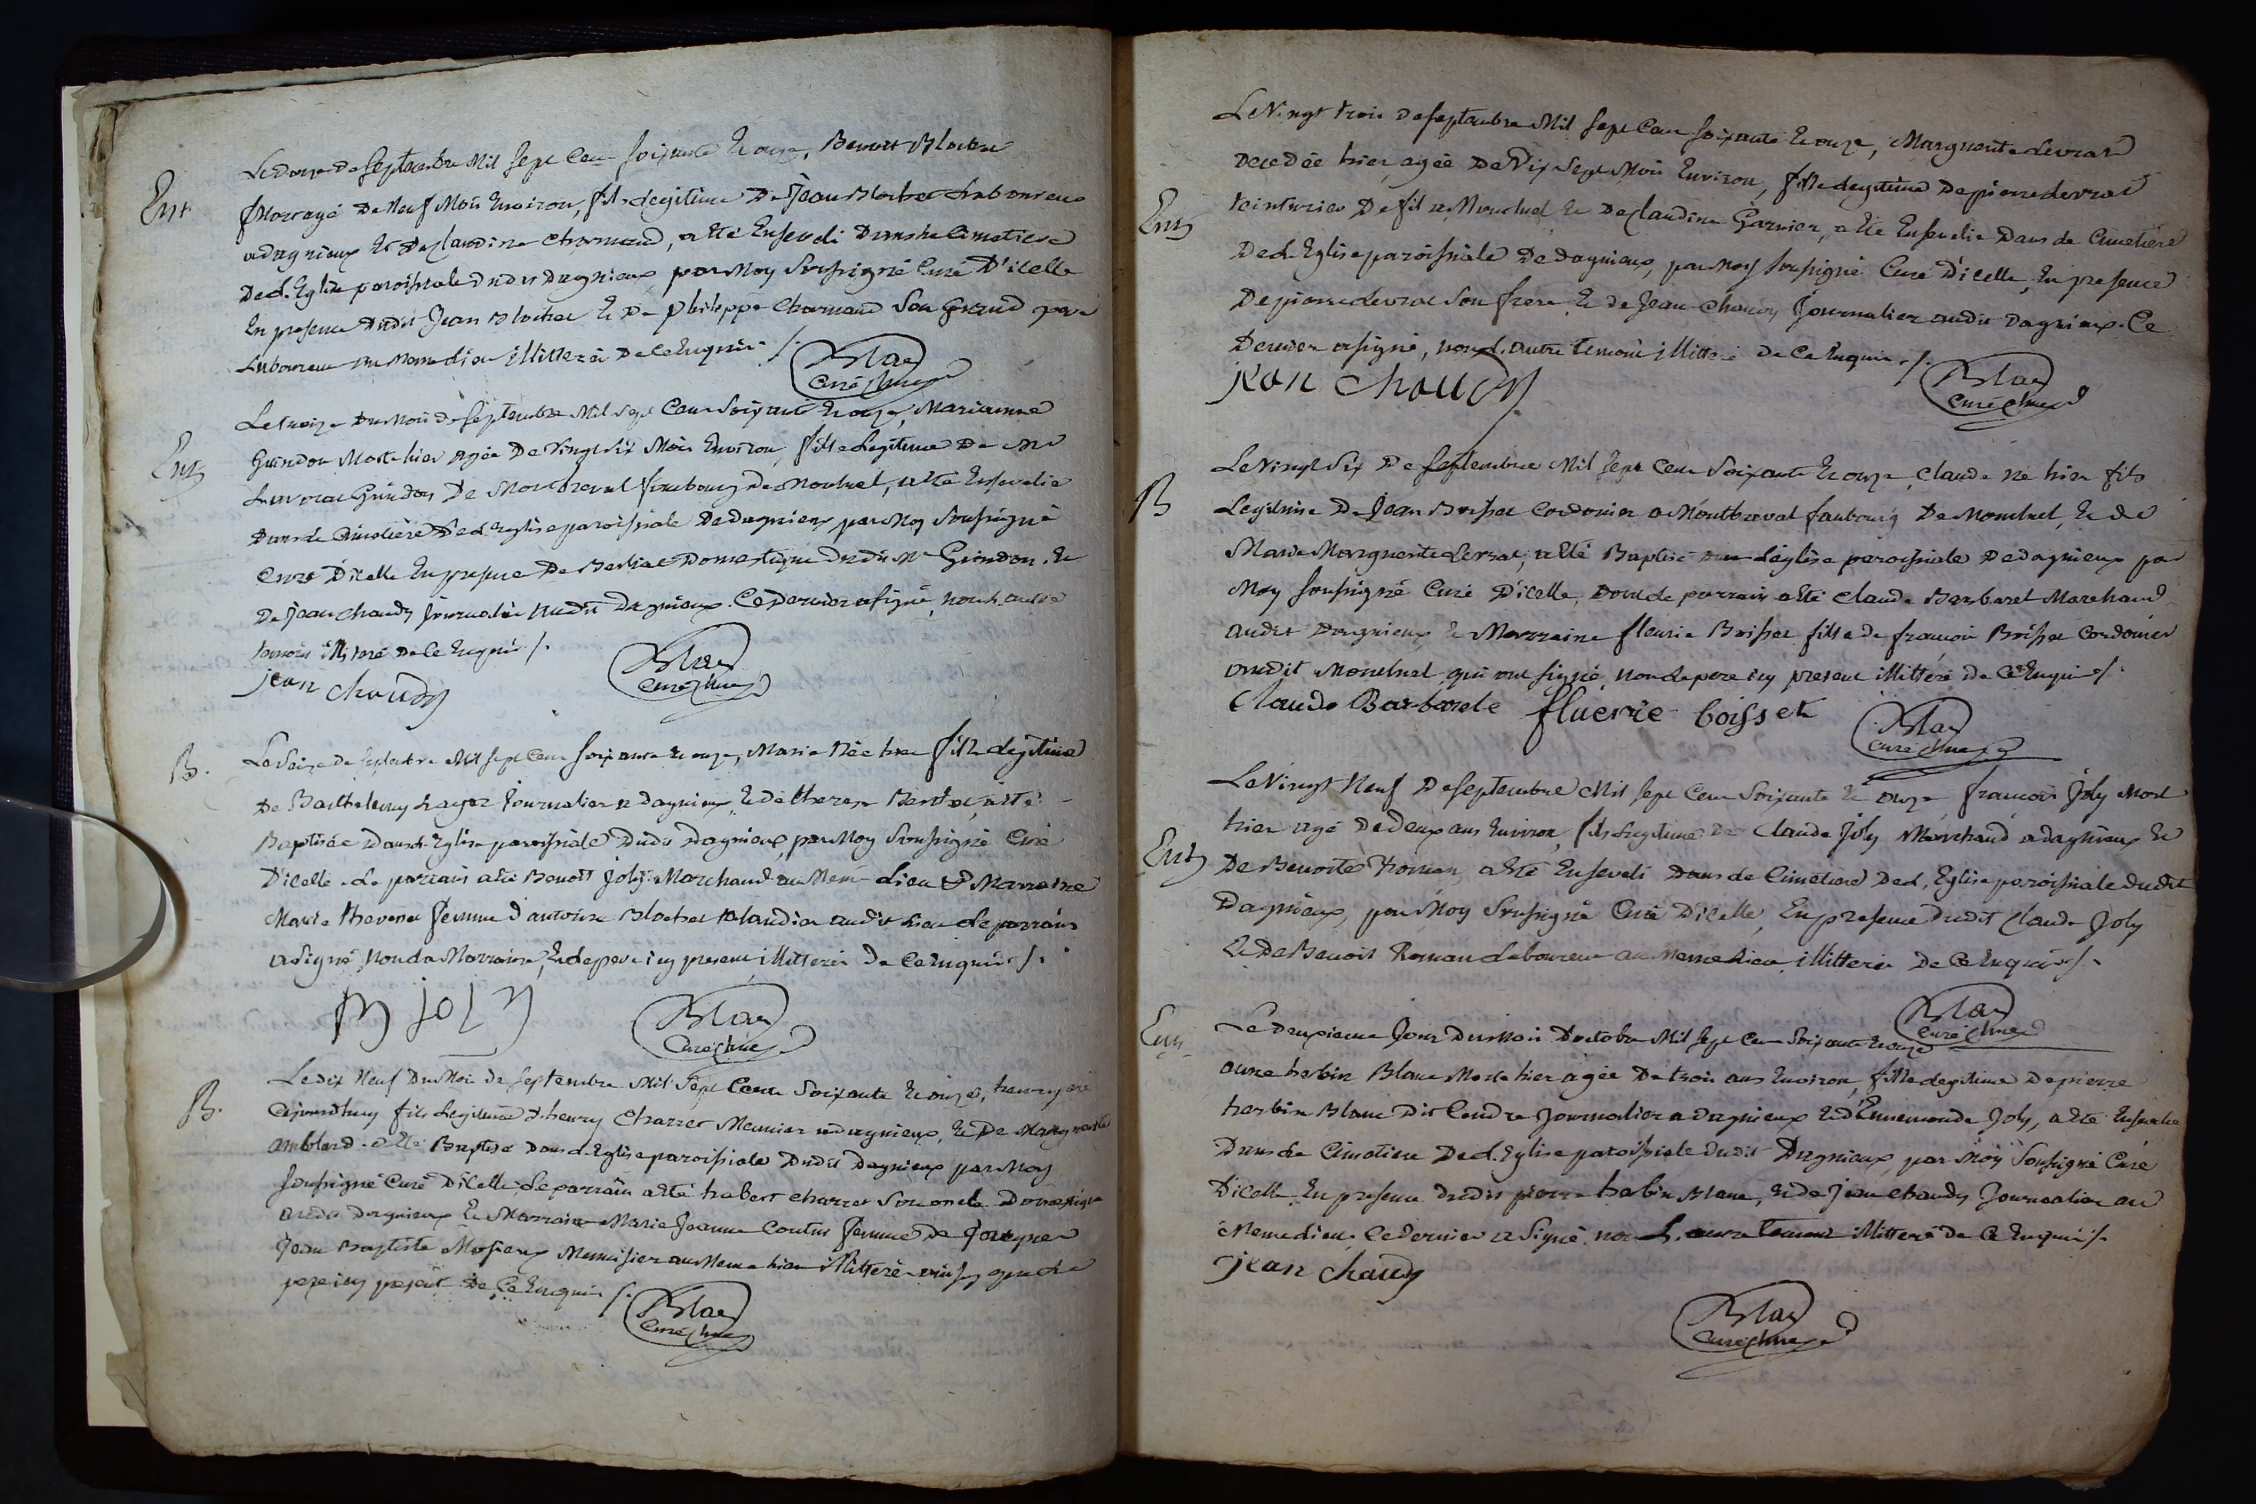 Ent
Le douze de septembre Mil sept Cent soixante Et onze, Benoit Blochet
Mort agé De Neuf Mois Environ, fils Legitime De Jean Blochet Laboureur
a dagnieux Et De Claudine Charmand, a Eté Enseveli Dans le Cimetiere
De L'Eglise paroissiale dudit dagnieux par Moy Soussigné Curé D'icelle
En presence dudit Jean Blochet Et De philippe Charmand Son Grand pere
Laboureur au Meme Lieu illitteré De Ce Enquis ./.
Blan
Curé
Ent
Le treize Du Mois de septembre Mil sept Cent Soixante Et onze, Marianne
Guindon Morte hier agée De Vingt Six Mois Environ, fille Legitime De
Guindon De Montbreval fauboug de Montluel, a Eté Ensevelie
Dans Le Cimetière De L'Eglise paroissiale De dagnieux par Moy Soussigné
Curé D'icelle En presence De Domestique dudit Mr Guindon, Et
De jean Chaudy journalier audit dagnieux. Ce Dernier a signé, non L'autre
temoin illiteré De Ce Enquis ./.
jean chaudy
Blan
Curé
B.
Le Seize de septembre Mil sept Cent soixante Et onze, Marie Née hier fille Legitime
De Barthelemy Journalier a Dagnieux, Et de therese a Eté
Baptisée Dans L'Eglise paroissiale Dudit Dagnieux, par Moy Soussigné Curé
D'icelle. Le parrain a Eté Benoît Joly Marchand au Meme Lieu Et Marraine
Marie thevenet femme d'antoine Blochet audit Lieu Le parrain
a Signé, Non La Marraine, Et Le pere icy present illitterés De Ce Enquis ./.
B joly
Blan
Curé
B.
Le dix Neuf Du Mois De septembre Mil Sept Cent Soixante Et onze, henry né
aujourdhuy fils Legitime d'henry Charret Meunier a dagnieux, Et De
amblard. a Eté Baptisé Dans L'Eglise paroissiale Dudit Dagnieux par Moy
Soussigné Curé D'icelle, Le parrain a Eté Charret Son oncle Domestique
audit Dagnieux Et Marraine Marie Jeanne femme De
Jean Baptiste Menuisier au Meme Lieu illitteré ainsy que Le
pere icy present De Ce Enquis ./.
Blan
Curé
Ent
Le Vingt trois De septembre Mil sept Cent soixante Et onze, Marguerite Levrat
Decedée hier, agée De Dix Sept Mois Environ, fille Legitime De pierre Levrat
teinturier De fil a Montluel Et De Claudine Garnier, a Eté Ensevelie Dans Le Cimetière
De L'Eglise paroissiale De dagnieux, par Moy soussigné Curé D'icelle, En presence
De pierre Levrat Son frere Et de Jean Chaudy Journalier audit Dagnieux. Ce
Dernier a signé, non L'autre temoin illitteré De Ce Enquis ./.
jean chaudy
Blan
Curé
B
Le Vingt Six De septembre Mil sept Cent Soixante Et onze, Claude Né hier fils
Legitime De Jean Boisset Cordonier a Montbreval fauboug De Montluel, Et de
Marie Marguerite Levrat, a Eté Baptisé L'église paroissiale De dagnieux par
Moy soussigné Curé D'icelle, Dont le parrain a Eté Claude Barbaret Marchand
audit Dagnieux Et Marraine fleurie Boisset fille de francois Boisset Cordonier
audit Montluel, qui ont signé, non Le pere icy present illitteré De Ce Enquis ./.
Claude Barbarete fluerie boisset
Blan
Curé
Ent
Le Vingt Neuf De septembre Mil sept Cent Soixante Et onze francois Joly Mort
hier agé De deux ans Environ, fils Legitime De Claude Joly Marchand a dagnieux Et
De Benoite Roman, a Eté Enseveli Dans Le Cimetiere De L'Eglise paroissiale dudit
Dagnieux, par Moy Soussigné Curé D'icelle, En presence Dudit Claude Joly
Et De Benoit Roman Laboureur au Meme Lieu, illitteré De Ce Enquis ./.
Blan
Curé
Ent
Le Deuxieme Jour Du Mois D'octobre Mil sept Cent Soixante Et onze
anne herbin Blanc Morte hier agée De trois ans Environ, fille Legitime De pierre
herbin Blanc Dit Journalier a Dagnieux Et D'Ennemonde Joly, a Eté Ensevelie
Dans Le Cimetiere De L'Eglise paroissiale dudit Dagnieux, par Moy Soussigné Curé
D'icelle En presence Dudit pierre herbin Blanc, Et De Jean Chaudy Journalier au
Meme Lieu, Ce Dernier a Signé, non L'autre temoin illitteré De Ce Enquis ./.
jean chaudy
Blan
Curé